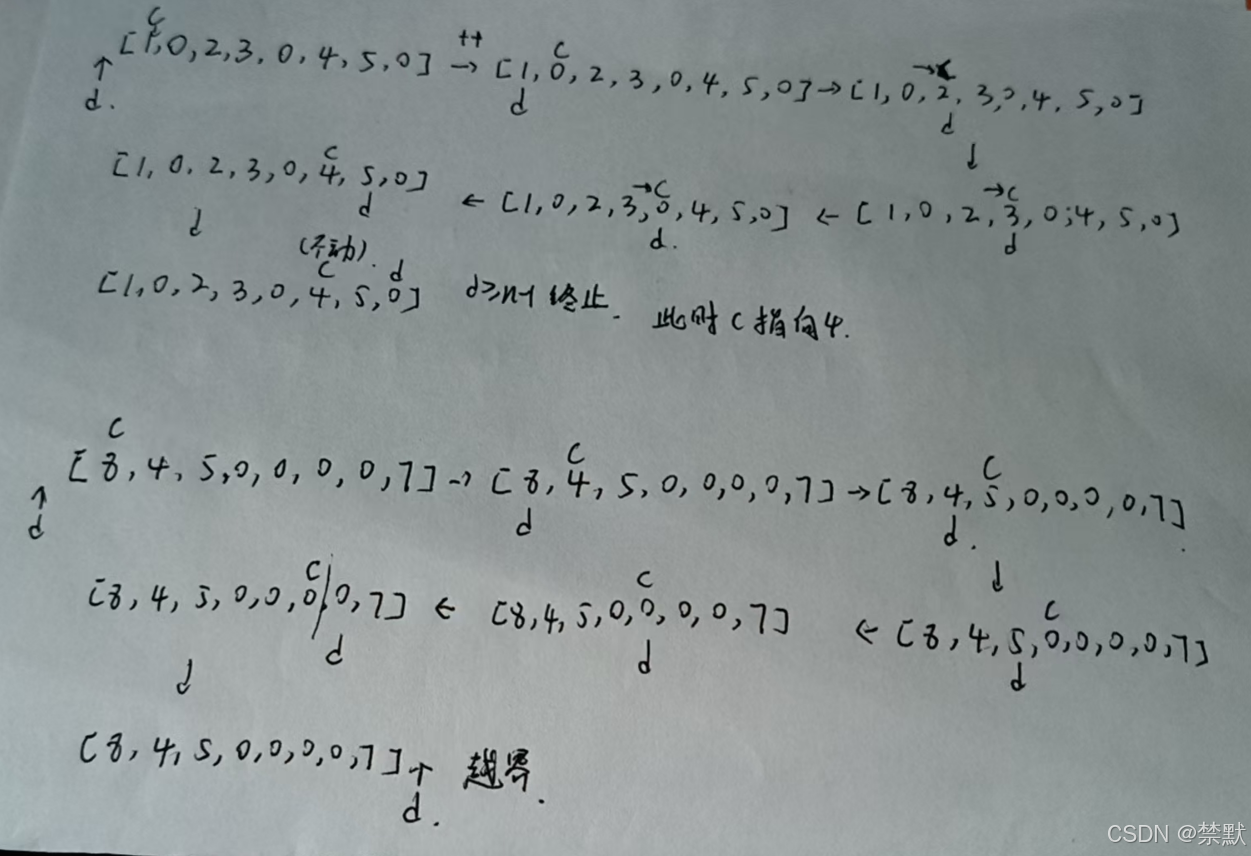 c
[1,0,2,3,0,4,5,0] ++→ [1,0,2,3,0,4,5,0] → [1,0,2,3,0,4,5,0]
d. c d →c d ↓
[1,0,2,3,0,4,5,0] ← [1,0,2,3,0,4,5,0] ← [1,0,2,3,0,4,5,0]
c d →c d. →c d
↓ (不动). c d
[1,0,2,3,0,4,5,0] d≥n-1 终止. 此时 c 指向4.
c c c
[8,4,5,0,0,0,0,7] → [8,4,5,0,0,0,0,7] → [8,4,5,0,0,0,0,7]
↑ d d d. ↓
c c c
[8,4,5,0,0,0,0,7] ← [8,4,5,0,0,0,0,7] ← [8,4,5,0,0,0,0,7]
d d d
↓
[8,4,5,0,0,0,0,7] ↑ 越界.
d.
CSDN @禁默